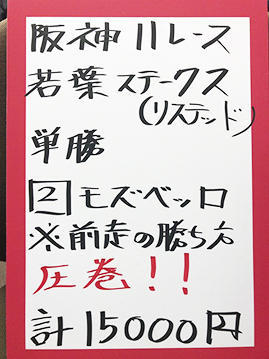 阪神11レース
若葉ステークス
(リステッド)
単勝
2 モズベッロ
※前走の勝ち方
圧巻!!
計15000円